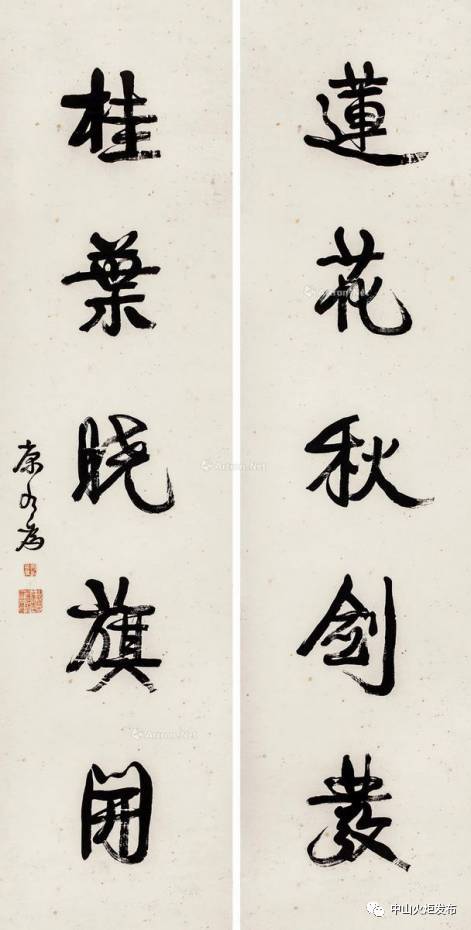 蓮花秋剑發
桂葉晓旗開
康有為
Artron.Net
中山火炬发布